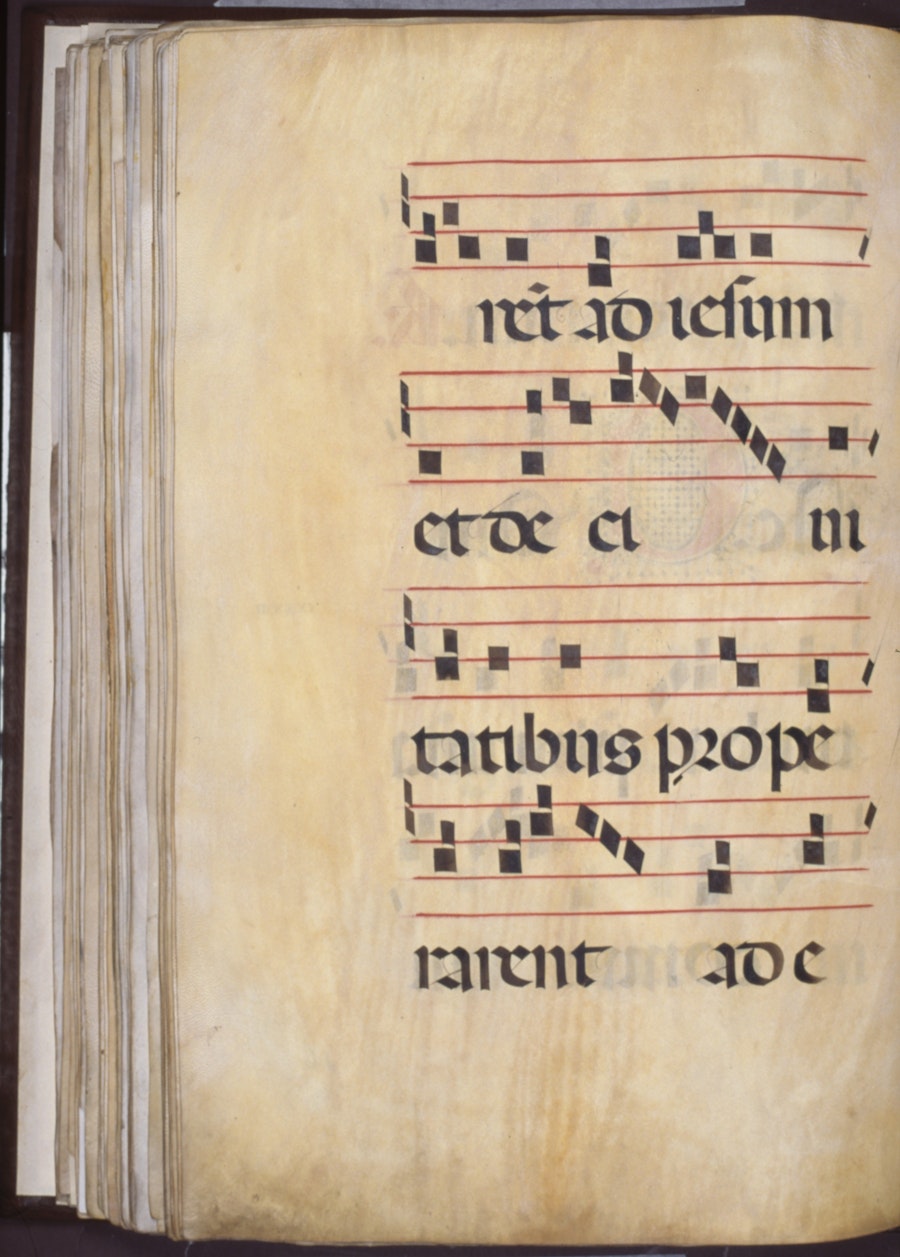 rēt ad iesum
et de ci ui
tatibus prope
rarent ad e